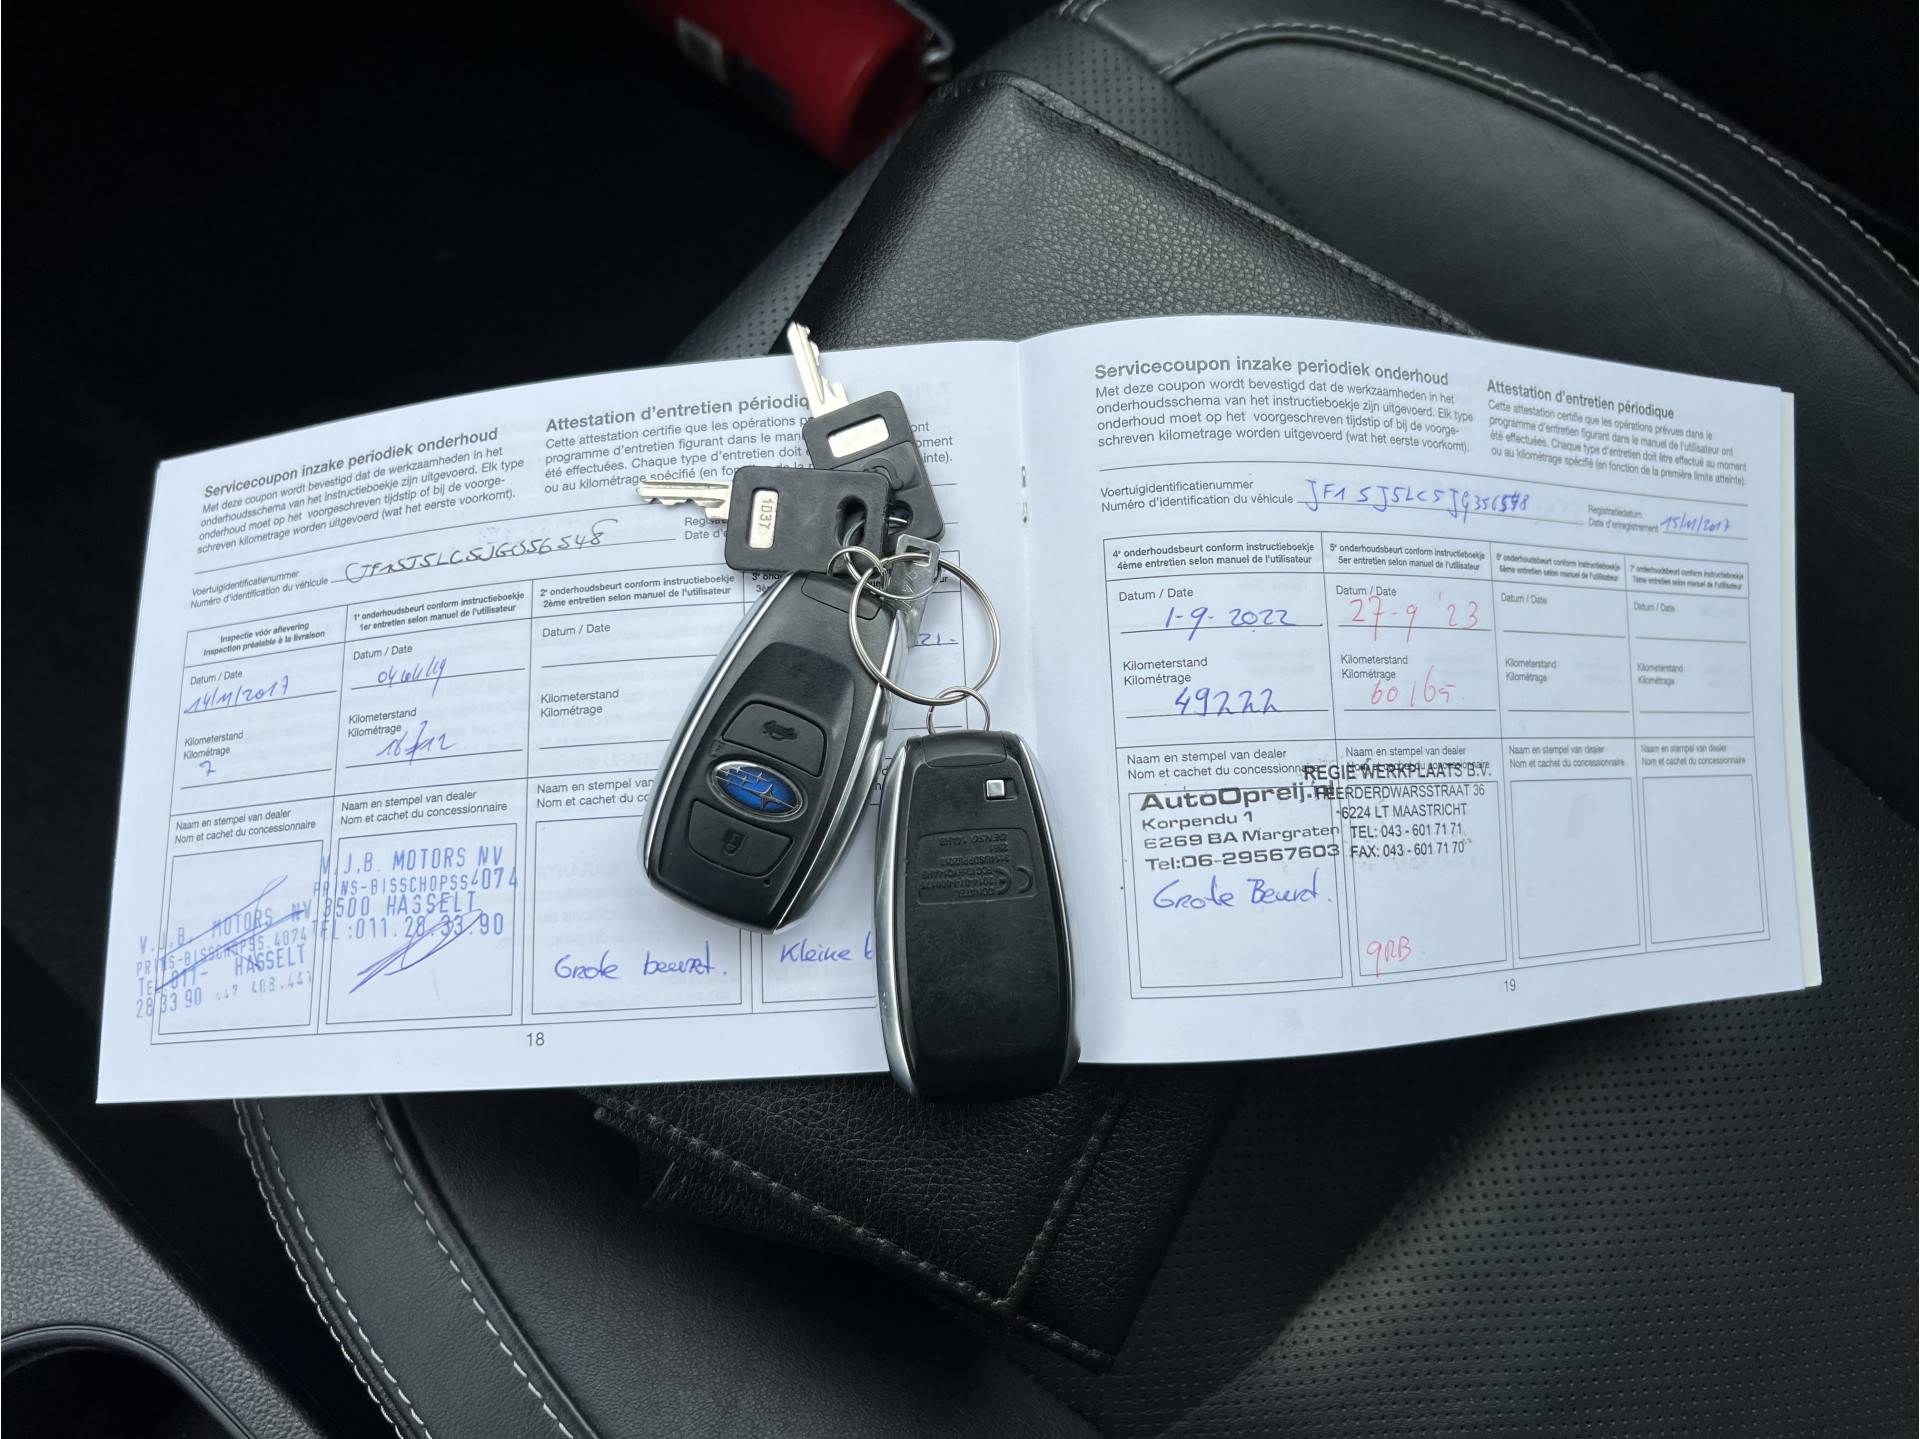 Servicecoupon inzake periodiek onderhoud
Met deze coupon wordt bevestigd dat de werkzaamheden in het
onderhoudsschema van het instructieboekje zijn uitgevoerd. Elk type
onderhoud moet op het voorgeschreven tijdstip of bij de voorge-
schreven kilometrage worden uitgevoerd (wat het eerste voorkomt).
Attestation d'entretien périodiq
Cette attestation certifie que les opérations p
programme d'entretien figurant dans le man
été effectuées. Chaque type d'entretien doit
ou au kilométrage spécifié (en fon
ont
moment
inte).
Voertuigidentificatienummer
Numéro d'identification du véhicule
Date d'e
Inspectie vóór aflevering
Inspection préalable à la livraison
Datum / Date
14/11/2017
Kilometerstand
Kilométrage
7
Naam en stempel van dealer
Nom et cachet du concessionnaire
V.J.B. MOTORS NV
PRINS-BISSCHOPSS.4074
HASSELT
28 33 90
1e onderhoudsbeurt conform instructieboekje
1er entretien selon manuel de l'utilisateur
Datum / Date
Kilometerstand
Kilométrage
Naam en stempel van dealer
Nom et cachet du concessionnaire
V.J.B. MOTORS NV
PRINS-BISSCHOPSS4074
3500 HASSELT
TEL:011.28.33.90
2e onderhoudsbeurt conform instructieboekje
2ème entretien selon manuel de l'utilisateur
Datum / Date
Kilometerstand
Kilométrage
Naam en stempel van
Nom et cachet du co
Grote beurt.
21-
Kleine b
18
1D37
Servicecoupon inzake periodiek onderhoud
Met deze coupon wordt bevestigd dat de werkzaamheden in het
onderhoudsschema van het instructieboekje zijn uitgevoerd. Elk type
onderhoud moet op het voorgeschreven tijdstip of bij de voorge-
schreven kilometrage worden uitgevoerd (wat het eerste voorkomt).
Attestation d'entretien périodique
Cette attestation certifie que les opérations prévues dans le
programme d'entretien figurant dans le manuel de l'utilisateur ont
été effectuées. Chaque type d'entretien doit être effectué au moment
ou au kilométrage spécifié (en fonction de la première limite atteinte).
Voertuigidentificatienummer
Numéro d'identification du véhicule
Registratiedatum
Date d'enregistrement 15/11/2017
4e onderhoudsbeurt conform instructieboekje
4ème entretien selon manuel de l'utilisateur
Datum / Date
1-9-2022
Kilometerstand
Kilométrage
49222
Naam en stempel van dealer
Nom et cachet du concessionnaire
AutoOpreij.nl
Korpendu 1
6269 BA Margraten
Tel:06-29567603
Grote Beurt.
5e onderhoudsbeurt conform instructieboekje
5er entretien selon manuel de l'utilisateur
Datum / Date
27-9 '23
Kilometerstand
Kilométrage
60165
Naam en stempel van dealer
REGIE WERKPLAATS B.V.
6224 LT MAASTRICHT
TEL: 043 - 601 71 71
FAX: 043 - 601 71 70
GRB
6e onderhoudsbeurt conform instructieboekje
6ème entretien selon manuel de l'utilisateur
Datum / Date
Kilometerstand
Kilométrage
Naam en stempel van dealer
Nom et cachet du concessionnaire
7e onderhoudsbeurt conform instructieboekje
7ème entretien selon manuel de l'utilisateur
Datum / Date
Kilometerstand
Kilométrage
Naam en stempel van dealer
Nom et cachet du concessionnaire
19